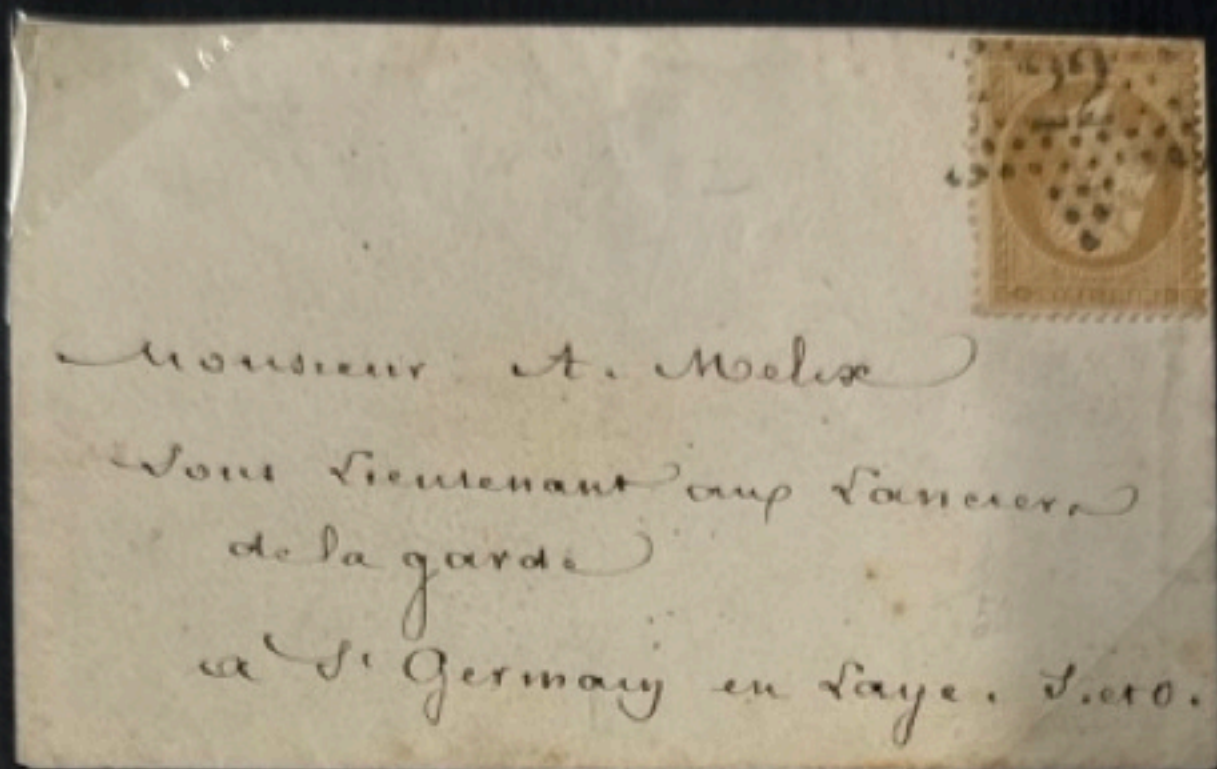 22
Monsieur A. Melix
Sous Lieutenant aux Lanciers
de la garde
a St Germain en Laye. S. et O.